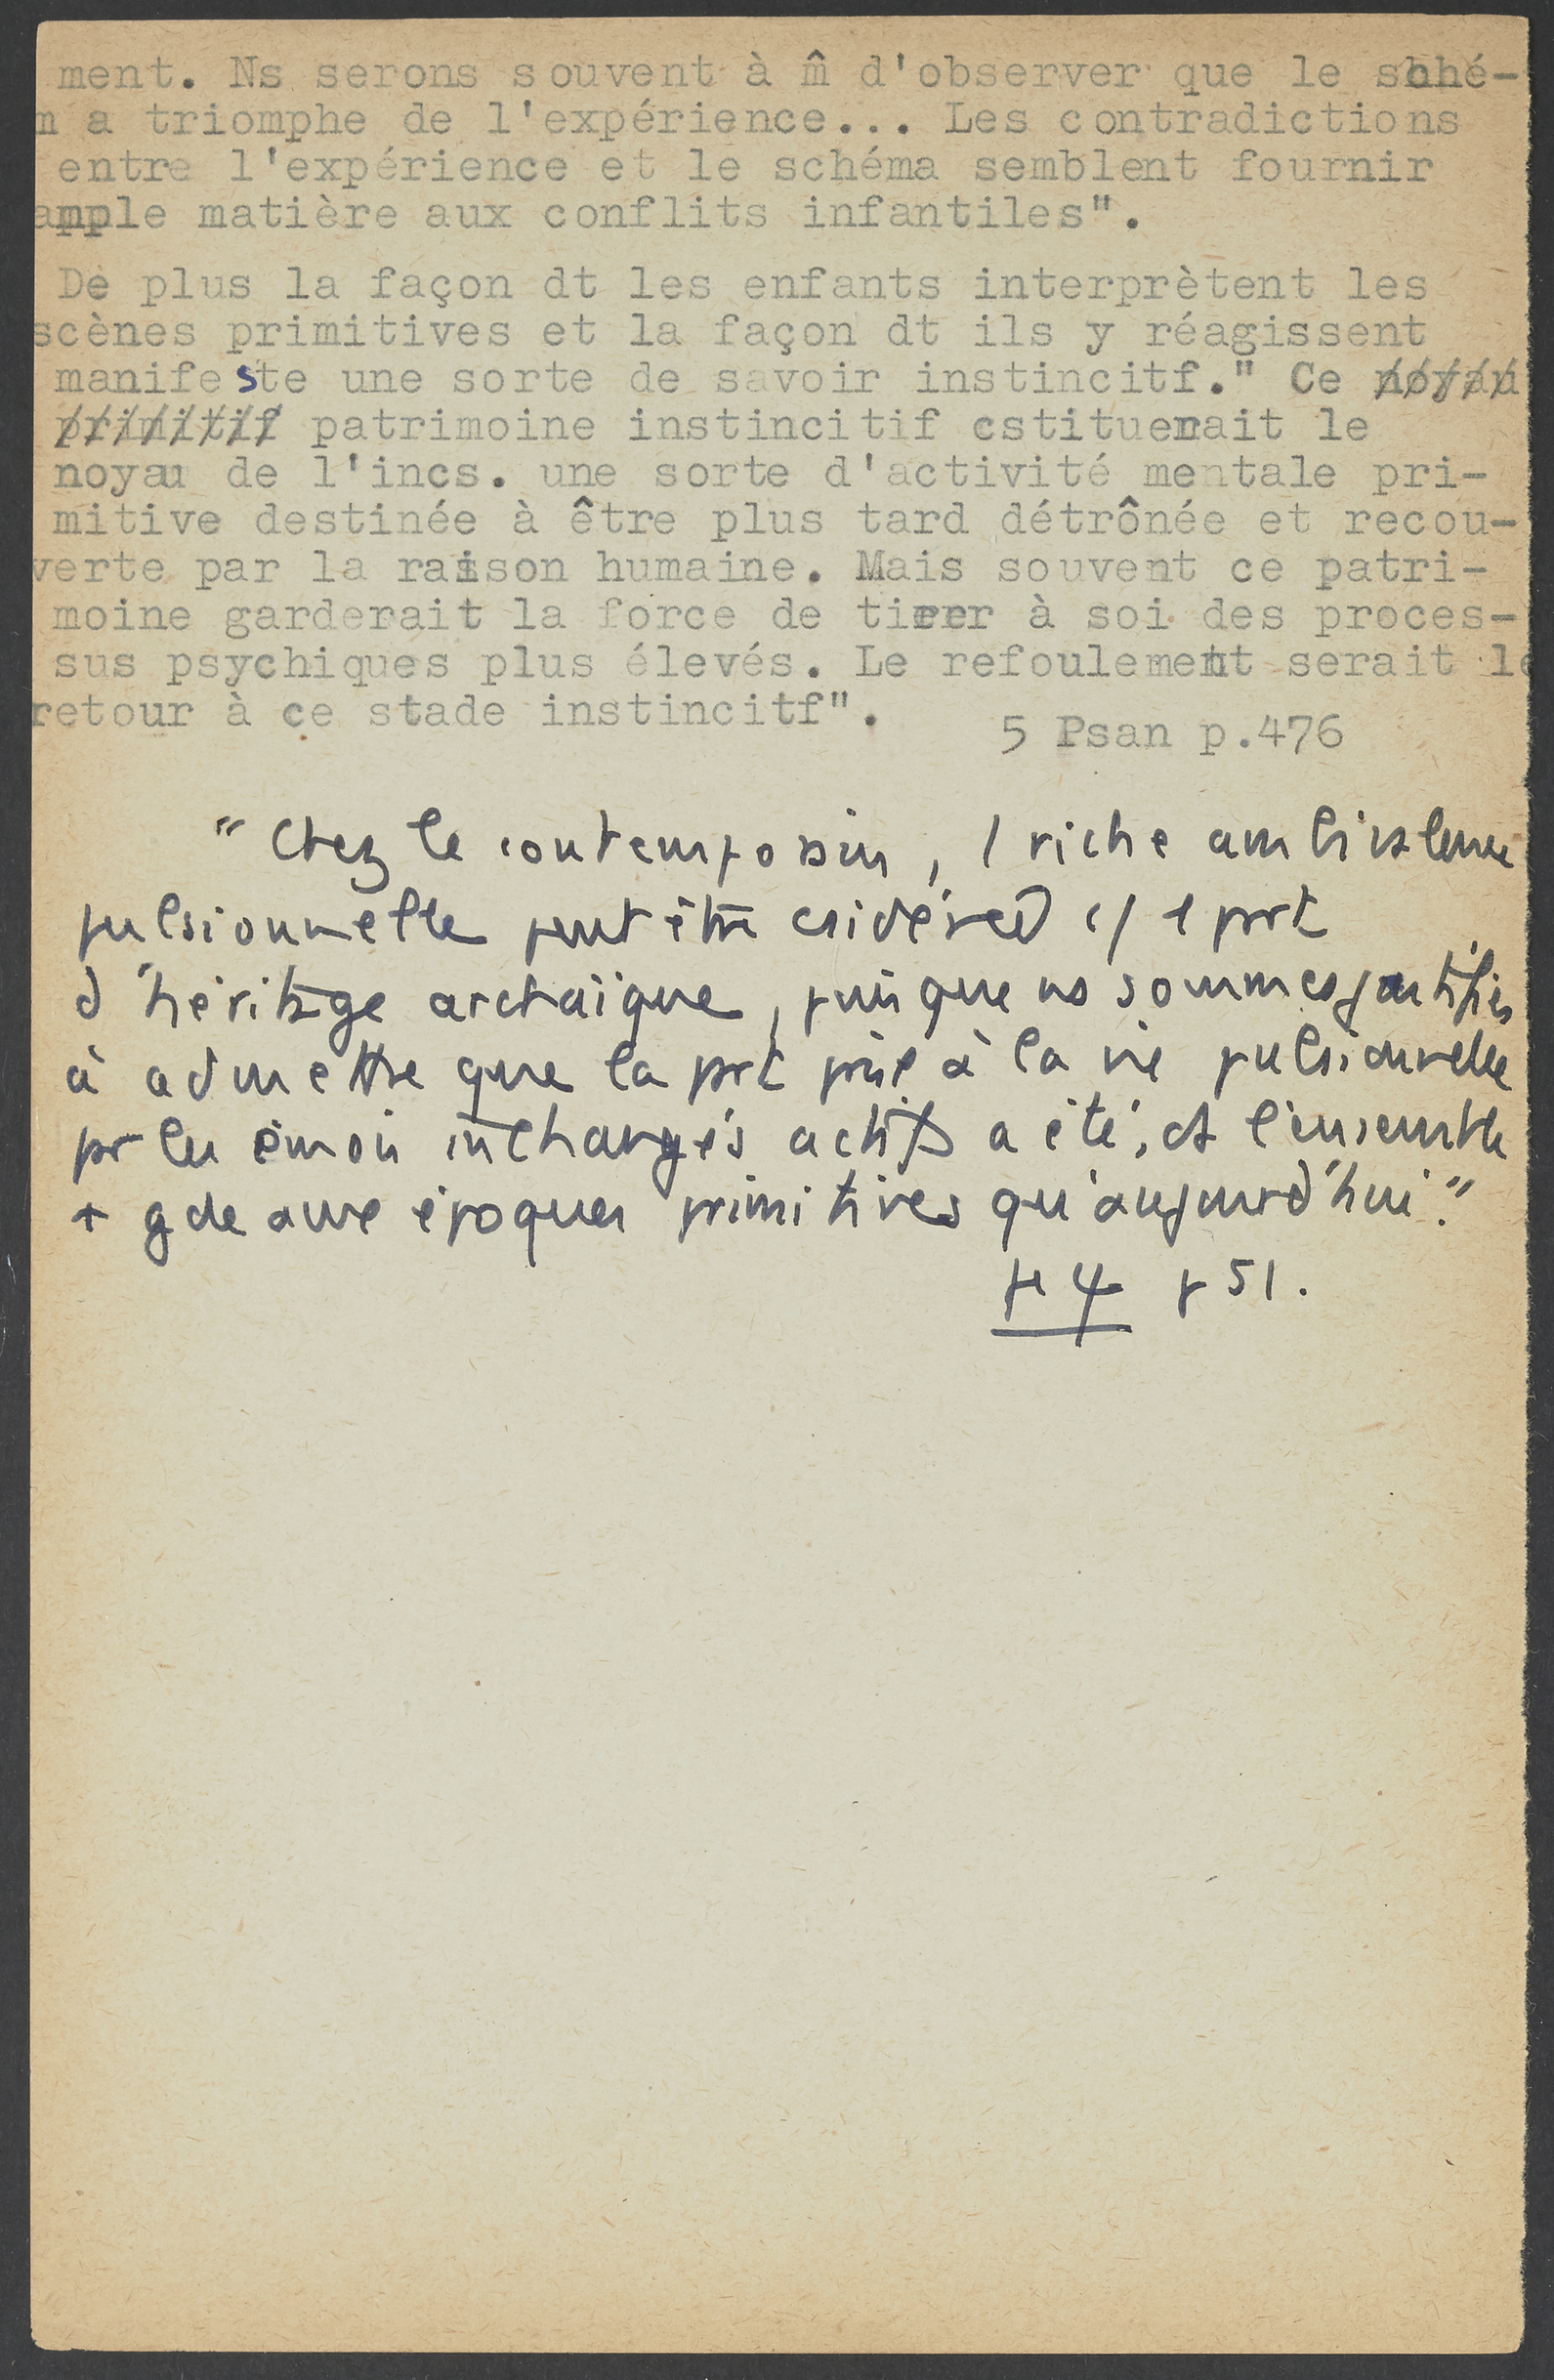 ment. Ns serons souvent à m̂ d'observer que le sché-
m a triomphe de l'expérience... Les contradictions
entre l'expérience et le schéma semblent fournir
ample matière aux conflits infantiles".
De plus la façon dt les enfants interprètent les
scènes primitives et la façon dt ils y réagissent
manifeste une sorte de savoir instincitf." Ce noyau
primitif patrimoine instincitif cstituerait le
noyau de l'incs. une sorte d'activité mentale pri-
mitive destinée à être plus tard détrônée et recou-
verte par la raison humaine. Mais souvent ce patri-
moine garderait la force de tirer à soi des proces-
sus psychiques plus élevés. Le refoulement serait le
retour à ce stade instincitf".
5 Psan p.476
"Chez le contemporain, 1 riche ambivalence
pulsionnelle peut être csidérée c/ 1 part
d'héritage archaïque, puisque ns sommes justifiés
à admettre que la prt prise à la vie pulsionnelle
pr les émois inchangés actifs a été, ds l'ensemble
+ gde aux époques primitives qu'aujourd'hui."
4 p 51.